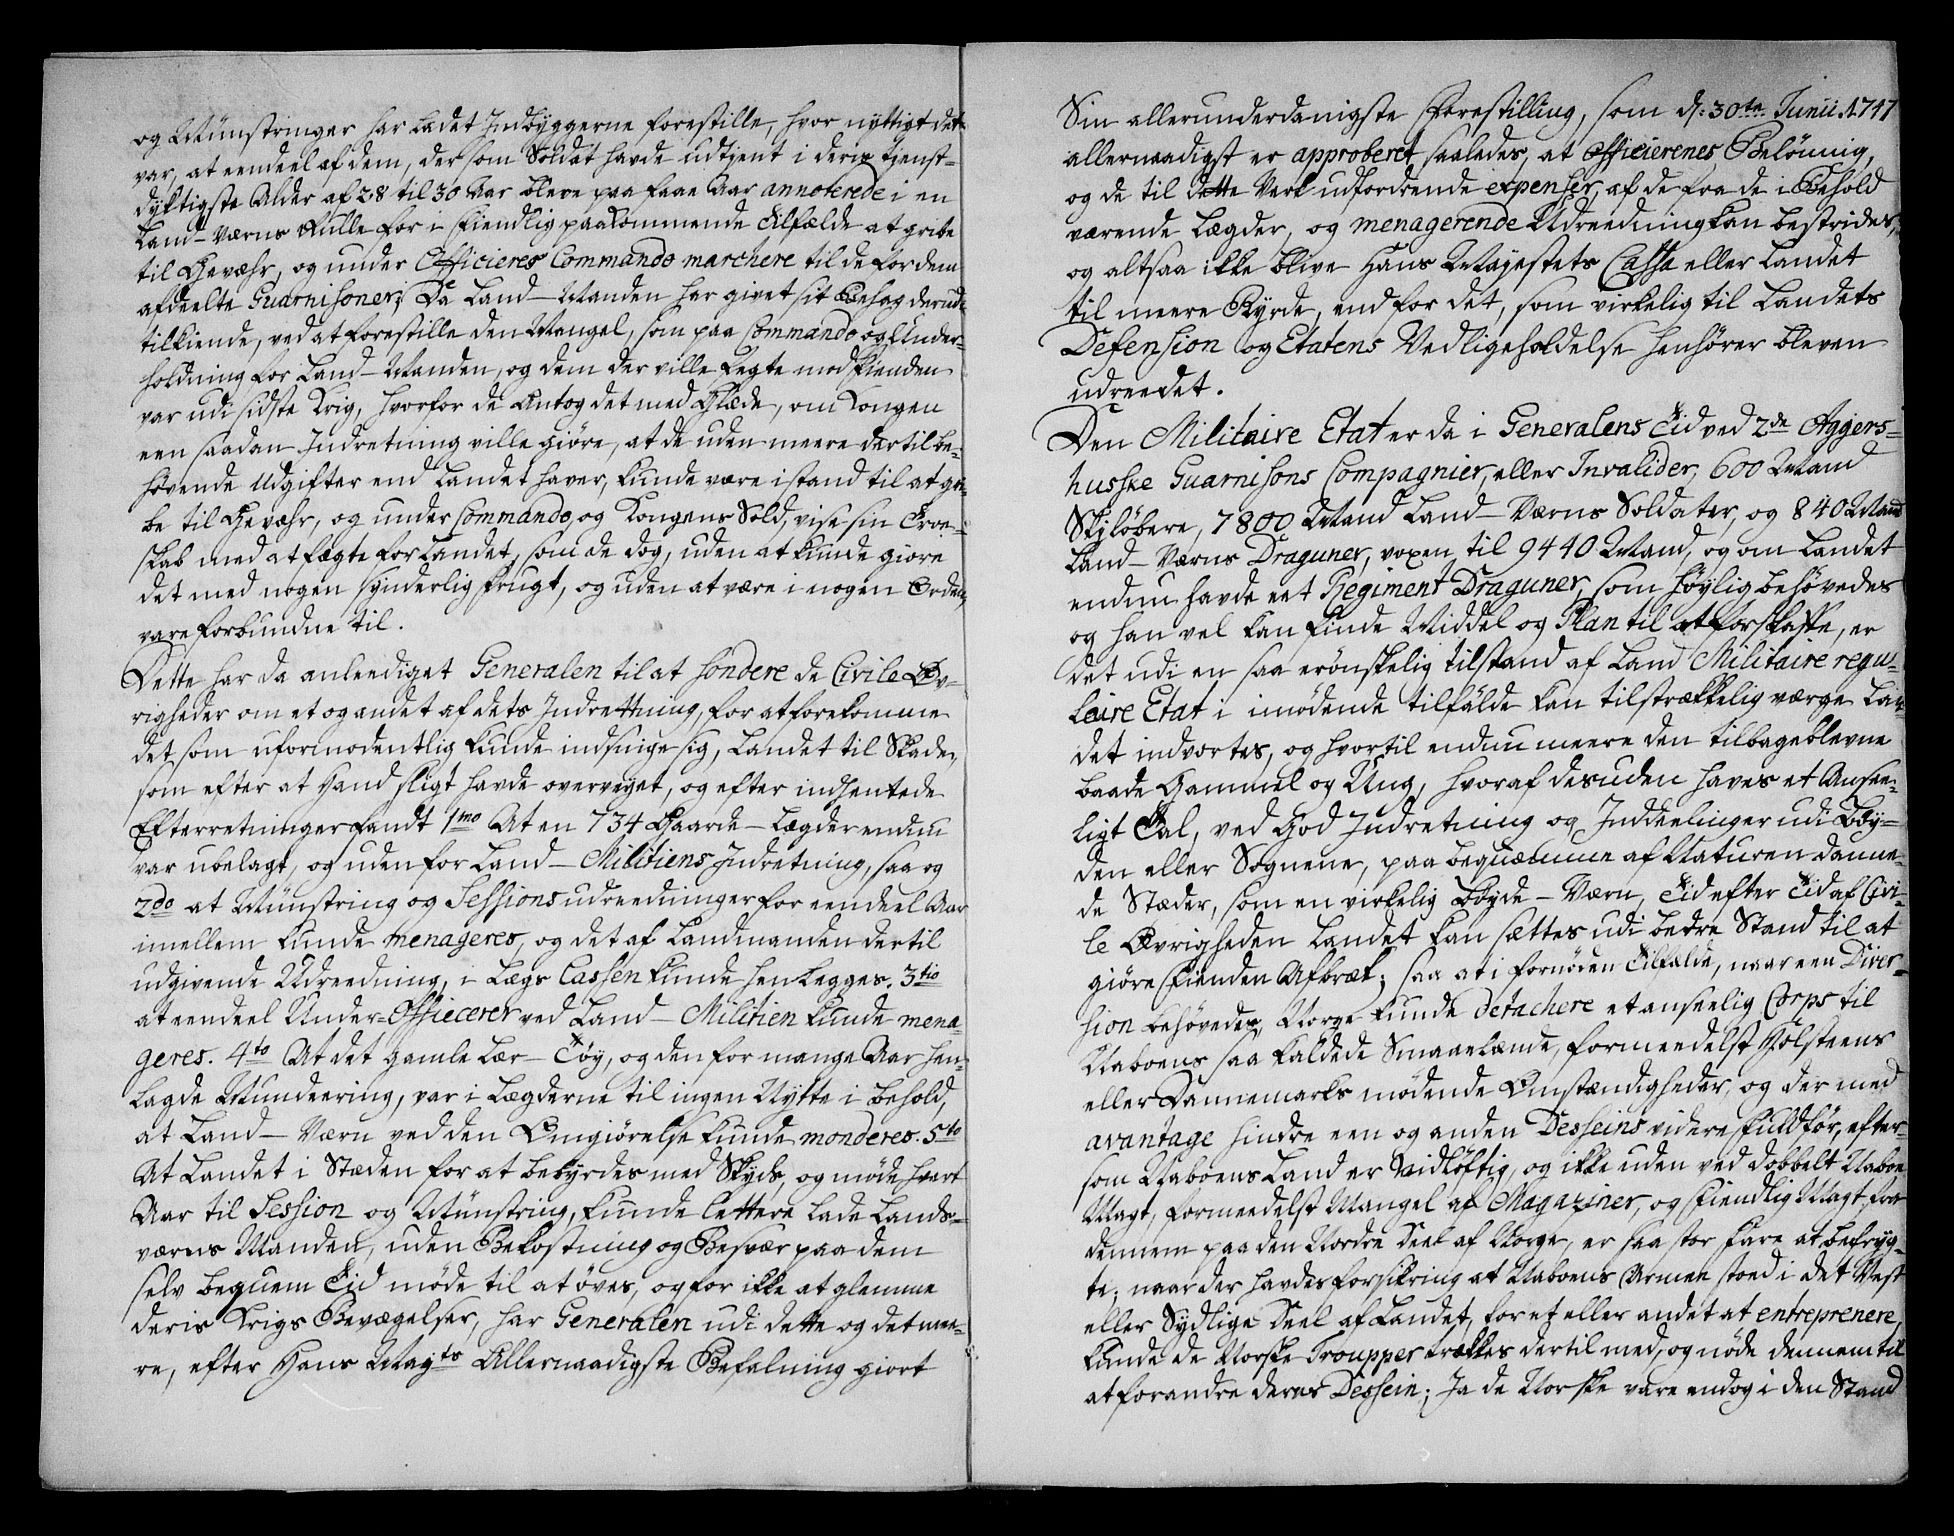 og Münstringer har ladet Indbyggerne forestille, hvor nyttigt det
var, at eendeel af dem, der som Soldat havde udtient i deris tienst-
dygtigste Alder af 28 til 30 Aar bleve paa faae Aar annoterede i en
Land-Værns Rulle for i fiendlig paakommende Tilfælde at gribe
til Gevæhr, og under Officieres Commando marchere til de for dem
afdeelte Guarnisoner; Da Land-Manden har givet sit Behag derud-
tilkiende, ved at forestille den Mangel, som paa Commando og Under-
holdning for Land-Manden, og dem der ville fegte mod Fienden
var udi sidste Krig, hvorfor de Antog det med Glæde, om Kongen
een saadan Indretning ville giøre, at de uden meere dertil be-
høvende Udgifter end Landet haver, kunde være istand til at gri-
be til Gevæhr, og under Commando, og Kongens Sold, vise sin Troe-
skab med at fægte for Landet, som de dog, uden at kunde giøre
det med nogen synderlig Frugt, og uden at være i nogen Orden,
vare forbundne til.
Dette har da anleediget Generalen til at sondere de Civile Øv-
righeder om et og andet af dets Indrettning, for at forekomme
det som uformodentlig kunde indsnige sig, Landet til Skade,
som efter at Hand sligt havde overveyet, og efter indhentede
Efterretninger fandt 1mo At en 734 Gaarde-Lægder endnu
var ubelagt, og uden for Land-Militiens Indretning, saa og
2do at Münstring og Sessions udreedninger for eendeel Aar
imellem kunde menageres, og det af Landmanden dertil
udgivende Udreedning, i Lægs Cassen kunde henlegges. 3tio
at eendeel Under-Officerer ved Land-Militien kunde mena-
geres. 4to At det gamle Lær-Tøy, og den for mange Aar hen-
lagde Mundeering, var i Lægderne til ingen Nytte i behold,
at Land-Værn ved den Omgiørelse kunde monderes. 5to
At Landet i Stæden for at bebyrdes med Skyds, og møde hvert
Aar til Session og Münstring, kunde lettere lade Lands-
værns Manden, uden Bekostning og Besvær paa dem
selv beqvem Tid møde til at øves, og for ikke at glemme
deris Krigs Bevægelser, har Generalen udi dette og det mee-
re, efter Hans Mayts Allernaadigste Befalning giort
Sin allerunderdanigste Forestilling, som d: 30te Junii 1747
allernaadigst er approberet saaledes, at Officierenes Belønnig,
og de til dette Verk udfordrende expenser, af de fra de i Behold
værende Lægder, og menagerende Udreedning kan bestrides,
og altsaa ikke blive Hans Mayestets Cassa eller Landet
til meere Byrde, end for det, som virkelig til Landets
Defension og Etatens Vedligeholdelse henhører bleven
udreedet.
Den Militaire Etat er da i Generalens Tid ved 2de Aggers-
huske Guarnisons Compagnier, eller Invalider, 600 Mand
Skiløbere, 7800 Mand Land-Værns Soldater, og 840 Mand
Land-Værns Draguner, voxen til 9440 Mand, og om Landet
endnu havde eet Regiment Draguner, som høylig behøvedes
og han vel kan finde Middel og Plan til at forskaffe, er
det udi en saa erønskelig tilstand af Land Militaire regu-
laire Etat i imødende tilfælde kan tilstrækkelig værge Lan-
det indvortes, og hvortil endnu meere den tilbageblevne
baade Gammel og Ung, hvoraf desuden haves et Ansee-
ligt Tal, ved God Indretning og Inddeelinger udi Bøy-
den eller Sognene, paa beqvemme af Naturen danne-
de Stæder, som en virkelig Bøyde-Værn, Tid efter Tid af Civi-
le Øvrigheden Landet kan sættes udi bedre Stand til at
giøre Fienden Afbræk; saa at i fornøden Tilfælde, naar een Diver-
sion behøvedes, Norge kunde detachere et anseelig Corps til
Naboens saa kaldede Smaaelænde, formeedelst Holsteens
eller Dannemarks mødende Omstændigheder, og der med
avantage hindre een og anden Desseins videre fuldfør, efter-
som Naboens Land er vidløftig, og ikke uden ved dobbelt Naboe
Magt, formeedelst Mangel af Magaziner, og fiendlig Magt for
dennem paa den Nordre Deel af Norge, er saa stor fare at befryg-
te; naar der havdes forsikring at Naboens Armee stoed i det Vest
eller Sydlige Deel af Landet, for et eller andet at entreprenere,
kunde de Norske Troupper trækkes dertil med, og nøde dennem til
at forandre deres Dessein; Ja de Norske vare endog i den Stand